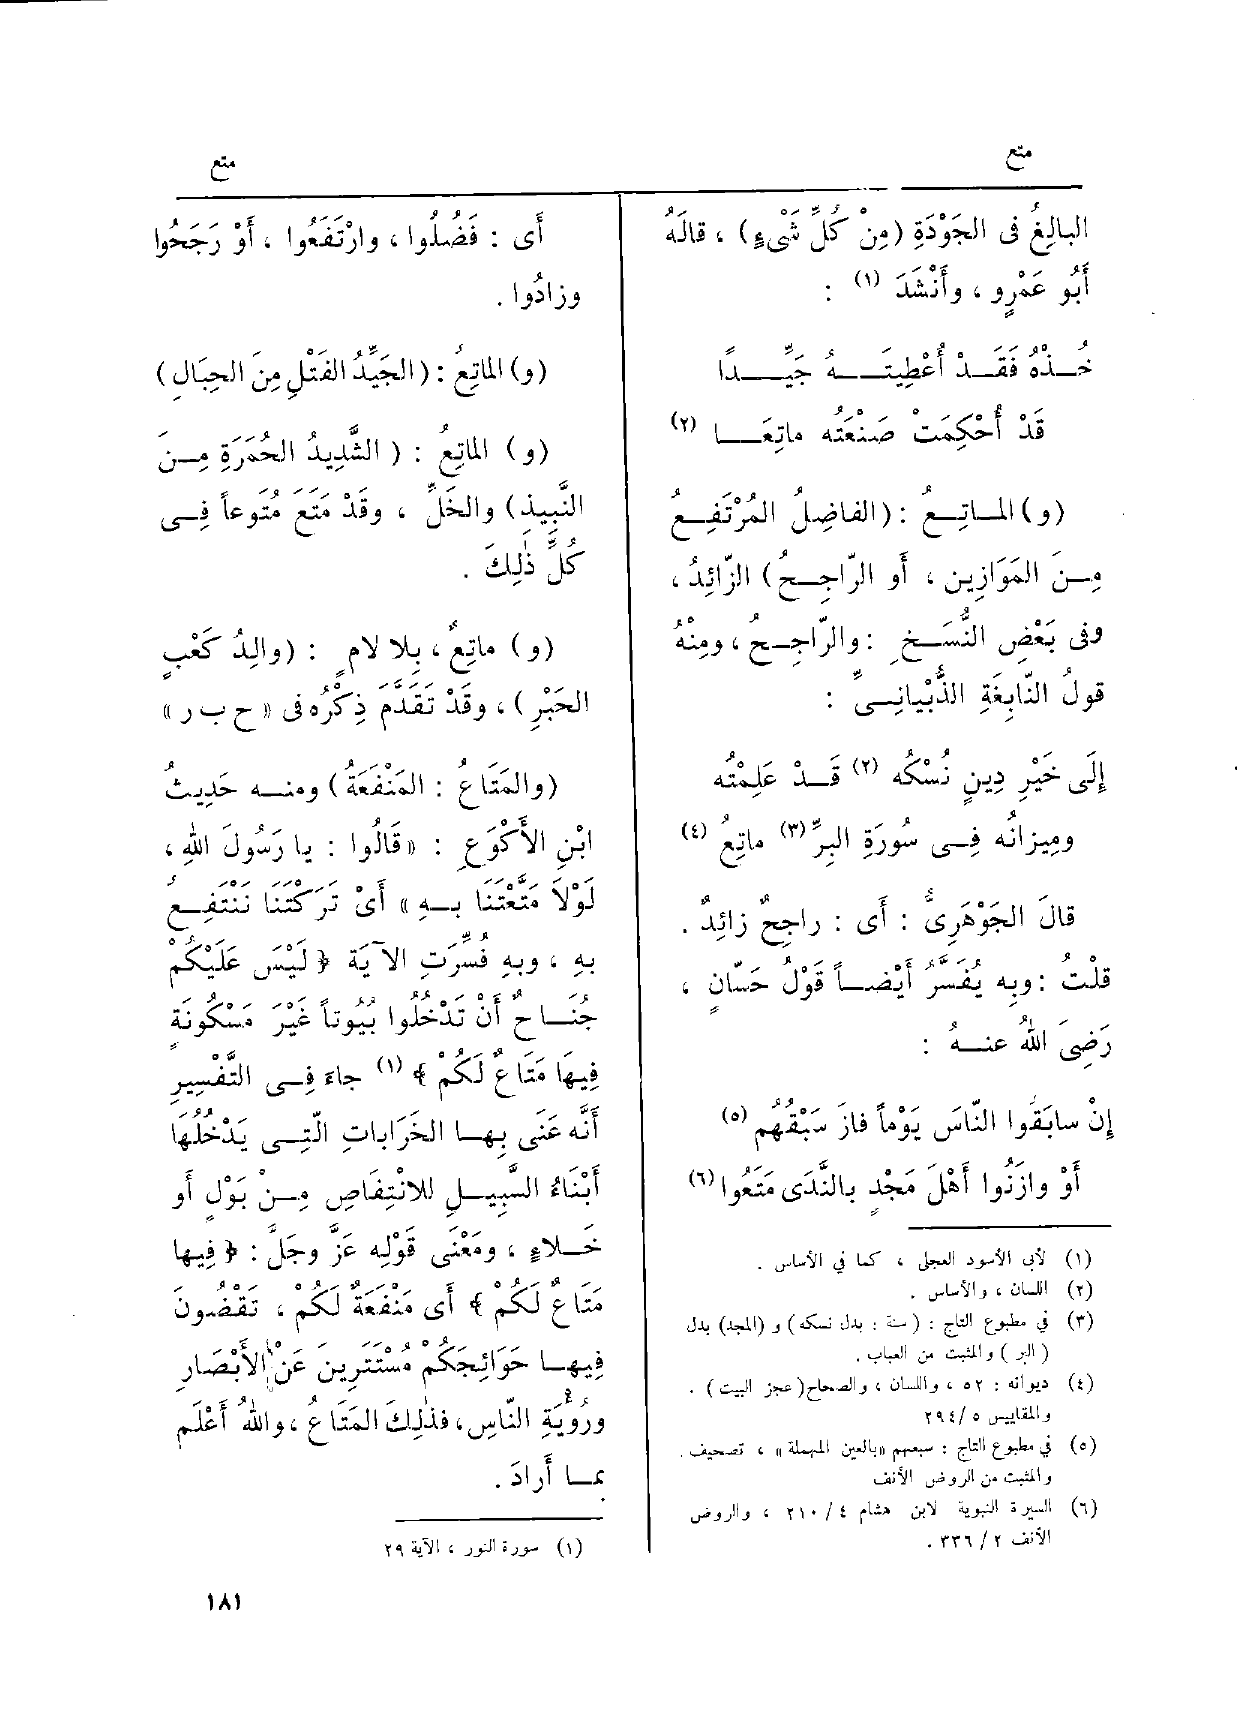 متع
متع
البالِغُ فى الجَوْدَةِ (مِنْ كُلِّ شَىْءٍ) ، قالَهُ
أَبُو عَمْرٍو ، وأَنْشَدَ (١) :
خُـذْهُ فَقَـدْ أُعْطِيتَـــهُ جَيِّـــدًا
قَدْ أُحْكِمَتْ صَنْعَتُه ماتِعَـــا (٢)
(و) المـاتِـعُ : (الفاضِلُ المُرْتَفِـعُ
مِـنَ المَوَازِينِ ، أَو الرّاجِـحُ) الزّائِدُ ،
وفى بَعْضِ النُّسَـخِ : والرّاجِـحُ ، ومِنْهُ
قولُ النّابِغَةِ الذُّبْيانِـىِّ :
إِلَى خَيْرِ دِينٍ نُسْكُه (٢) قَـدْ عَلِمْتُه
ومِيزانُه فِـى سُورَةِ البِرِّ (٣) ماتِعُ (٤)
قالَ الجَوْهَرِىُّ : أَى : راجِحٌ زائِدٌ .
قلْتُ : وبِه يُفَسَّرُ أَيْضـاً قَوْلُ حَسّانٍ ،
رَضِىَ اللهُ عنــهُ :
إِنْ سابَقُوا النّاسَ يَوْماً فازَ سَبْقُهُم (٥)
أَوْ وازَنُوا أَهْلَ مَجْدٍ بالنَّدَى مَتَعُوا (٦)
(١) لأبى الأسود العجلى ، كما في الأساس .
(٢) اللسان ، والأساس .
(٣) في مطبوع التاج : (سنة : بدل نسكه) و (المجد) بدل
(البر) والمثبت من العباب .
(٤) ديوانه : ٥٢ ، واللسان ، والصحاح (عجز البيت) .
والمقاييس ٢٩٤/٥
(٥) في مطبوع التاج : سبعهم «بالعين المهملة» ، تصحيف .
والمثبت من الروض الأنف
(٦) السيرة النبوية لابن هشام ٤ / ٢١٠ ، والروض
الأنف ٢ / ٣٣٦ .
أَى : فَضُلُوا ، وارْتَفَعُوا ، أَوْ رَجَحُوا
وزادُوا .
(و) الماتِعُ : (الجَيِّدُ الفَتْلِ مِنَ الحِبَالِ)
(و) الماتِعُ : (الشَّدِيدُ الحُمْرَةِ مِـنَ
النَّبِيذِ) والخَلِّ ، وقَدْ مَتَعَ مُتُوعاً فِـى
كُلِّ ذٰلِكَ .
(و) ماتِعٌ ، بِلا لامٍ : (والِدُ كَعْبٍ
الحَبْرِ) ، وقَدْ تَقَدَّمَ ذِكْرُه فى «ح ب ر»
(والمَتَاعُ : المَنْفَعَةُ) ومنــه حَدِيثُ
ابْنِ الأَكْوَعِ : «قَالُوا : يا رَسُولَ اللهِ ،
لَوْلاَ مَتَّعْتَنَا بِـهِ» أَىْ تَرَكْتَنَا نَنْتَفِـعُ
بِهِ ، وبِهِ فُسِّرَتِ الآيَة ﴿ لَيْسَ عَلَيْكُمْ
جُنَـاحٌ أَنْ تَدْخُلُوا بُيُوتاً غَيْرَ مَسْكُونَةٍ
فِيهَا مَتَاعٌ لَكُمْ ﴾ (١) جاءَ فِـى التَّفْسِيرِ
أَنَّه عَنَى بِهـا الخَرَاباتِ الَّتِـى يَدْخُلُهَا
أَبْنَاءُ السَّبِيـلِ للانْتِفَاصِ مِـنْ بَوْلٍ أَو
خَـلاءٍ ، ومَعْنَى قَوْلِه عَزَّ وجَلَّ : ﴿ فِيها
مَتَاعٌ لَكُمْ ﴾ أَى مَنْفَعَةٌ لَكُمْ ، تَقْضُونَ
فِيهـا حَوَائِجَكُمْ مُسْتَتِرِينَ عَنْ الأَبْصَارِ
ورُؤْيَةِ النّاسِ ، فذٰلِكَ المَتَاعُ ، واللهُ أَعْلَم
بمـا أَرادَ .
(١) سورة النور ، الآية ٢٩
١٨١